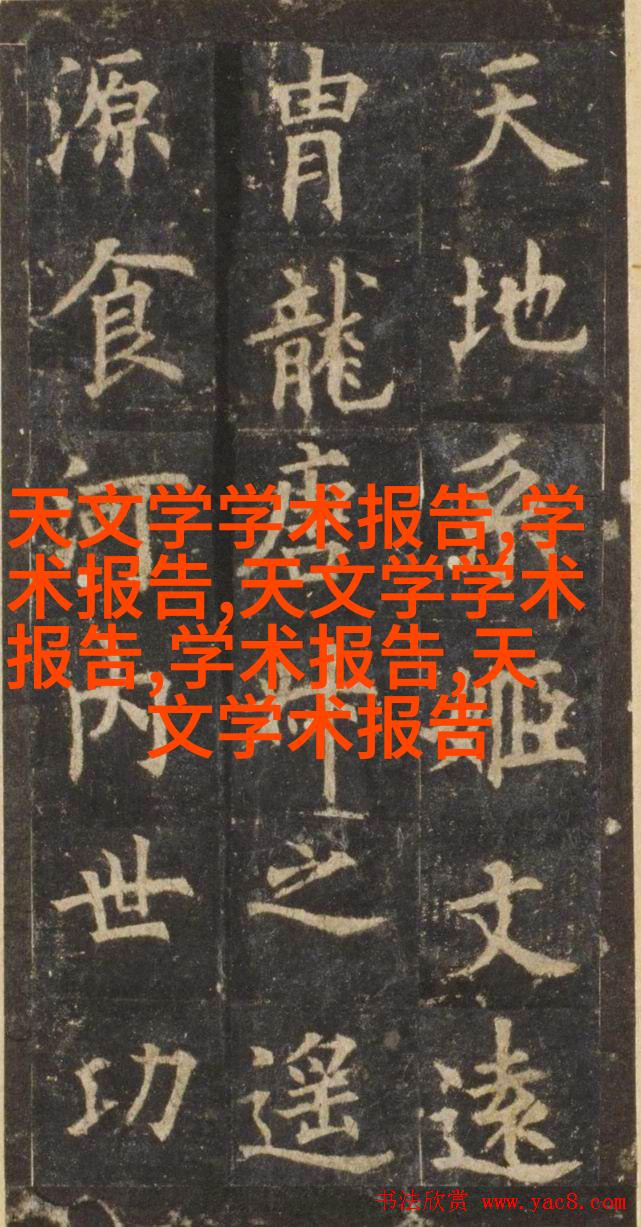 天地系姬文遠
胄龍唐叶之遥
源食河内世功
天文学学术报告,学
术报告,天文学学术
报告,学术报告,天
文学术报告
书法欣赏 www.yac8.com